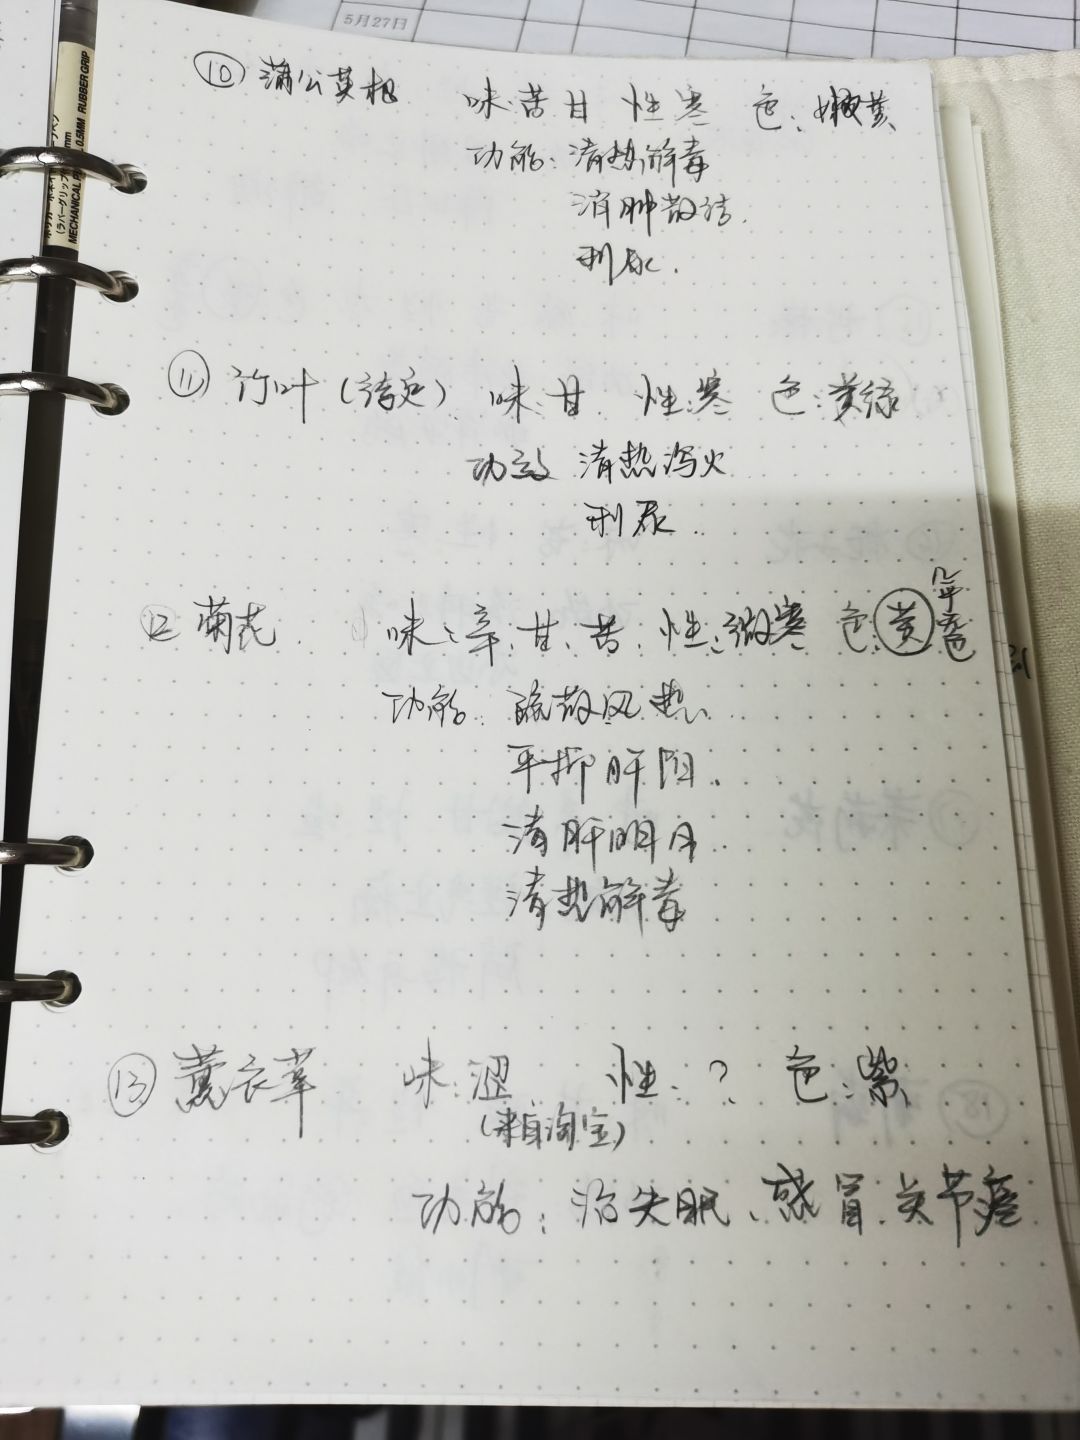 5月27日
RUBBER GRIP
0.5MM
MECHANICAL
(ラバーグリップ)
⑩ 蒲公英根 味:苦甘 性:寒 色:嫩黄
功能:清热解毒
消肿散结.
利尿.
⑪ 竹叶(待定) 味:甘 性:寒 色:黄绿
功效 清热泻火
利尿
12 菊花 味:辛;甘、苦; 性:微寒 色:黄
功能:疏散风热
平抑肝阳.
清肝明目
清热解毒
⑬ 薰衣草 味:涩 性:? 色:紫
(来自淘宝)
功能:治失眠、感冒.关节